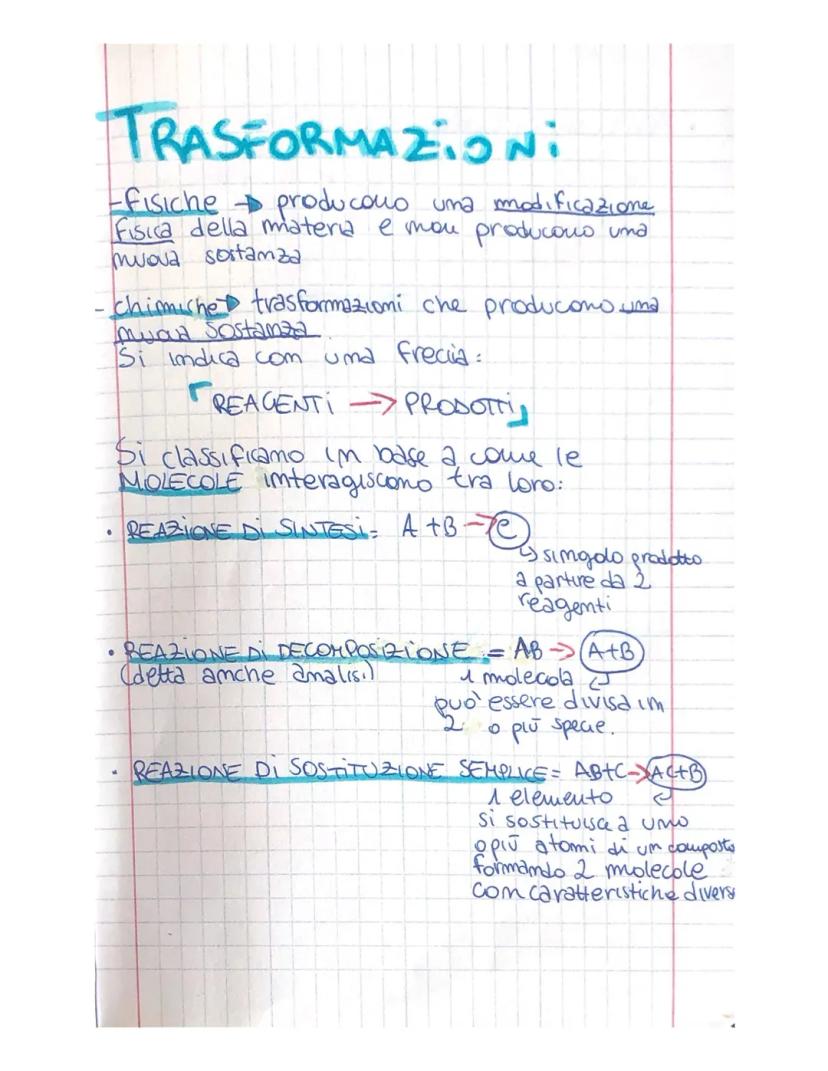 TRASFORMAZiONi
-fisiche → producono una modificazione
fisica della materia e non producono una
nuova sostanza
- chimiche→ trasformazioni che producono una
nuova sostanza
Si indica con una freccia:
REAGENTi → PRODOTTi
Si classificano in base a come le
MOLECOLE interagiscono tra loro:
• REAZiONE Di SiNTESi= A +B → C
↳ singolo prodotto
a partire da 2
reagenti
• REAZiONE Di DECOMPOSiZiONE = AB → A+B
(detta anche analisi)
1 molecola
può essere divisa in
2 o più specie.
• REAZiONE Di SOSTiTUZiONE SEMPLiCE= AB+C→AC+B
1 elemento
si sostituisce a uno
o più atomi di un composto
formando 2 molecole
con caratteristiche divers